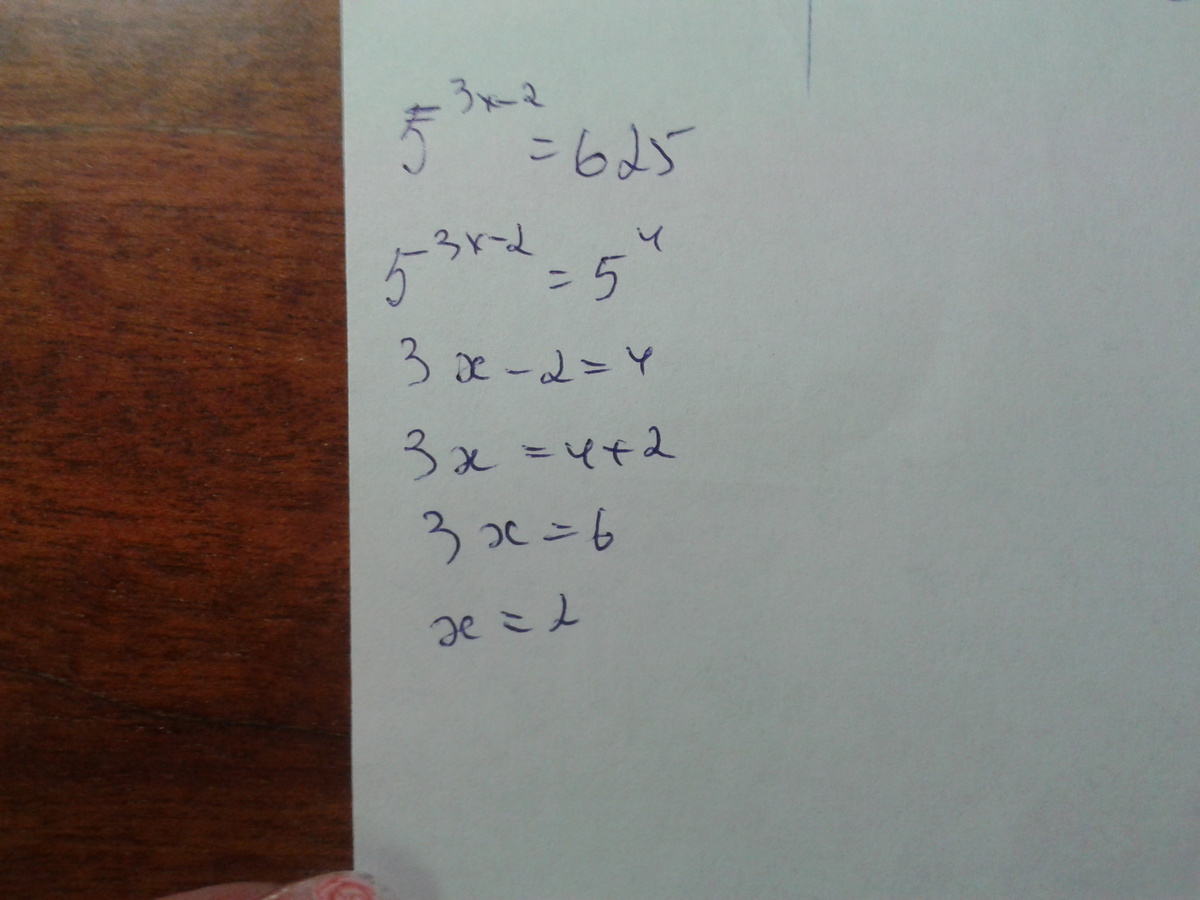 5^{3x-2} = 625
5^{3x-2} = 5^4
3x-2=4
3x=4+2
3x=6
x=2